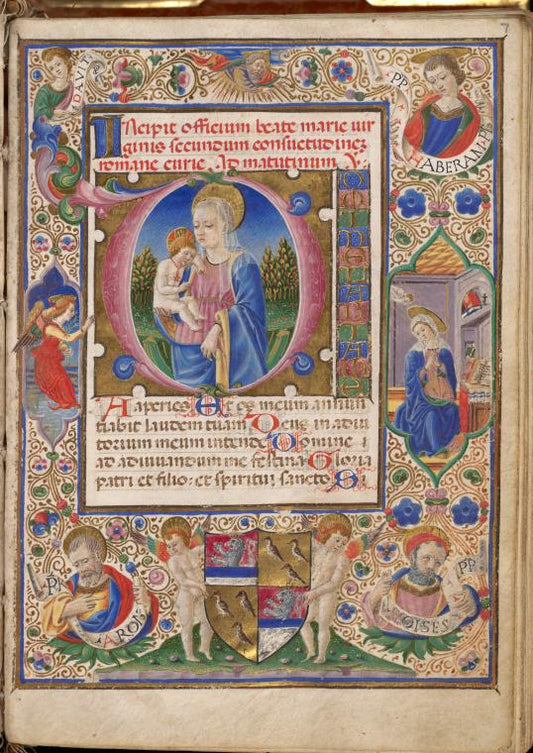 7
DAVIT
PP
HABERAM
INcipit officium beate marie uir
ginis secundum consuetudinez
romane curie. Ad matutinum. Y.
A aperies. Et os meum annun
tiabit laudem tuam. Deus in adiu
torium meum intende. Domine
ad adiuuandum me festina. Gloria
patri et filio: et spiritui sancto. S
PP
ARON
PP
MOISES